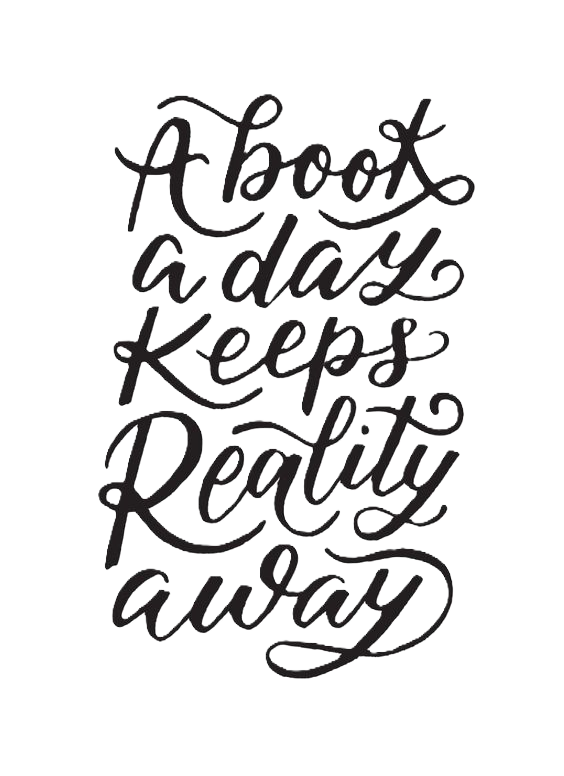 A book
a day
Keeps
Reality
away